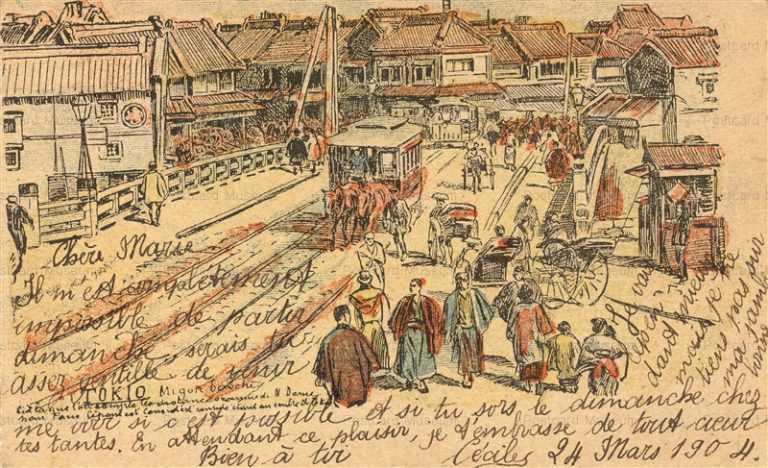 Chère Marie
Il m'est complètement
impossible de partir
dimanche serais tu
assez gentille de venir
TOKIO Migon basche
me voir si c'est possible et si tu sors le dimanche chez
tes tantes. En attendant ce plaisir, je t'embrasse de tout cœur
Bien à toi Cécile 24 Mars 1904.
Je vais
mais je ne
tiens pas sur
ma jambe
bonne